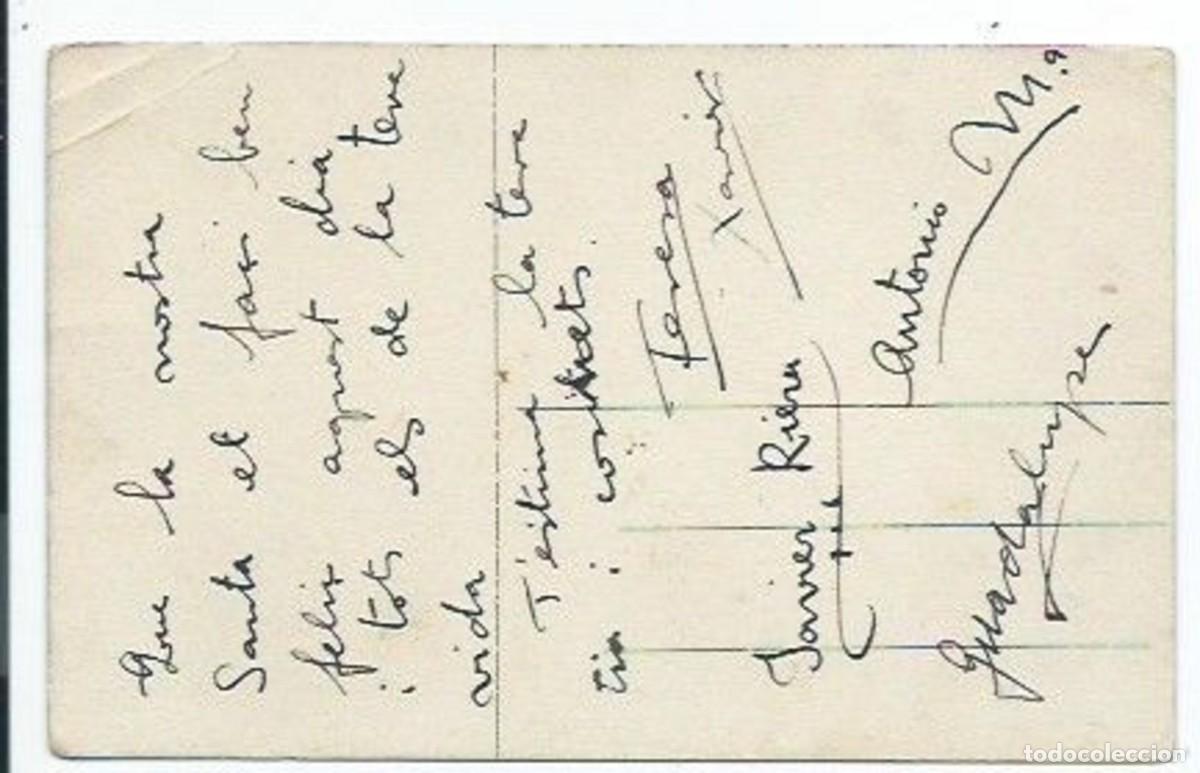 Que la nostra
Santa et faci ben
feliç aquest dia
i tots els de la teva
vida
T'estima la teva
tia i cosinets.
Teresa
Xavier
Javier Riera
Antonio M.ª
Guadalupe
todocoleccion